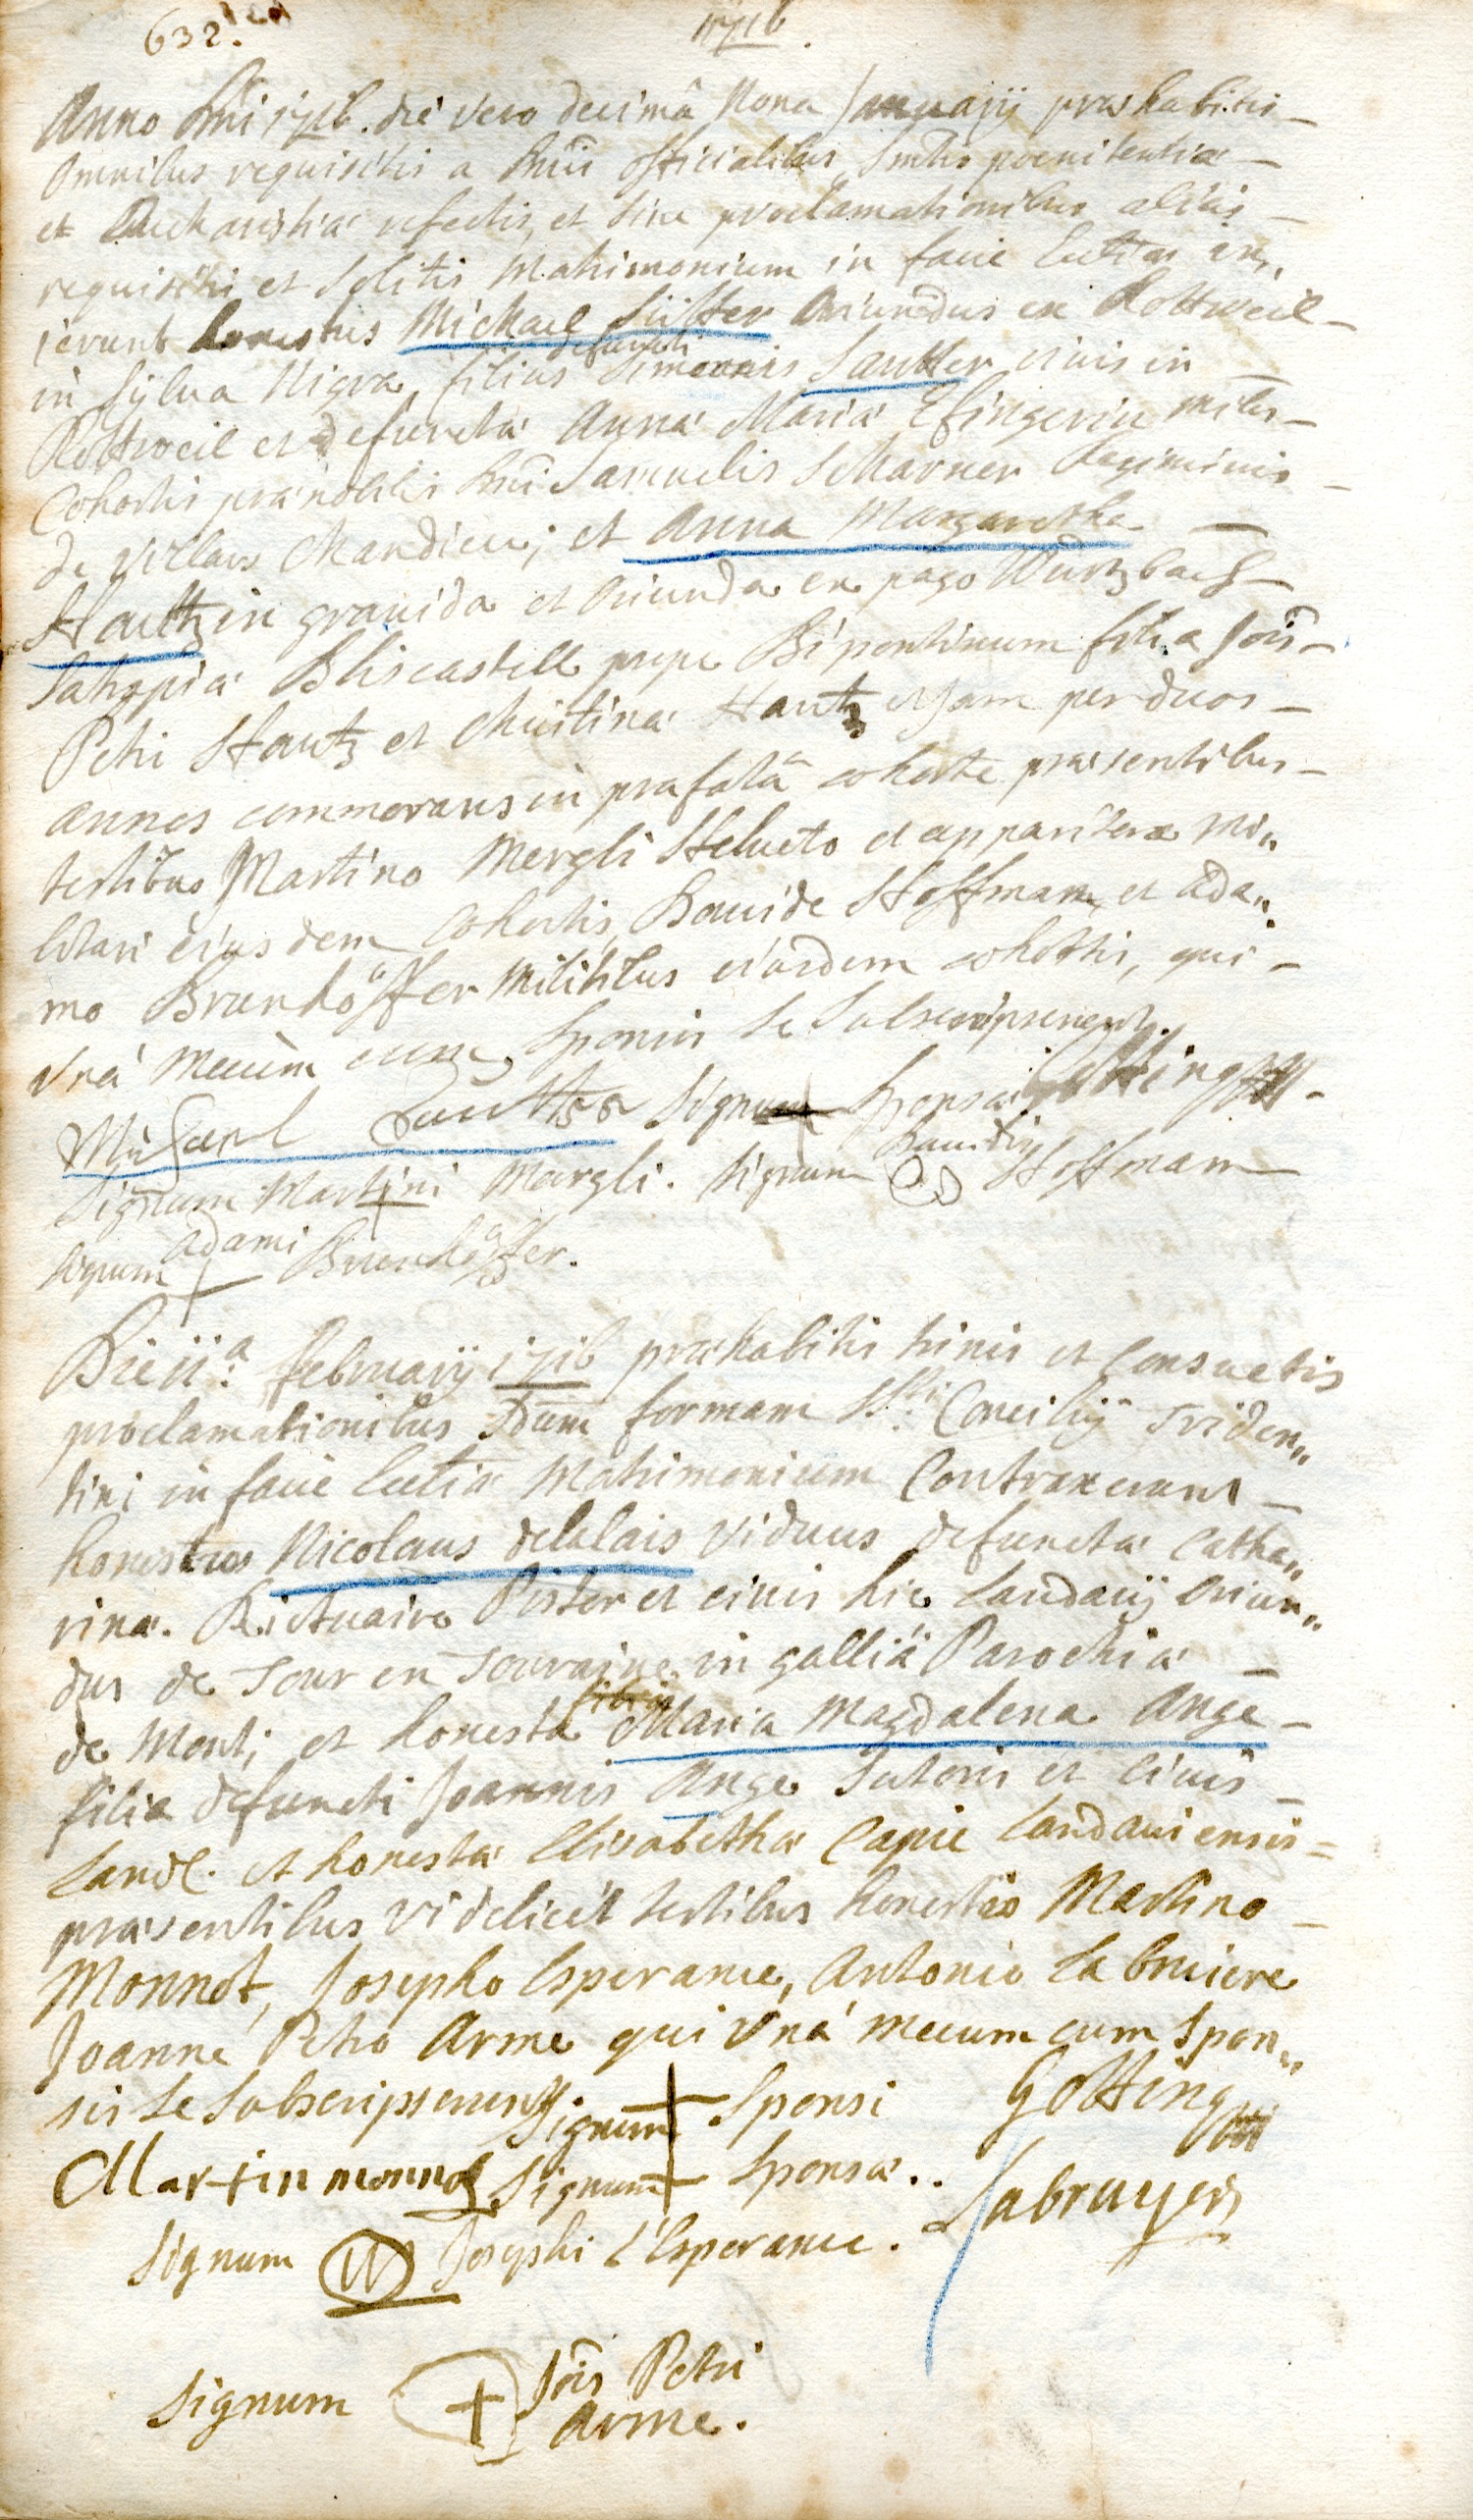 632.
1716.
Anno Dni 1716. die vero decimâ Nona Januarij praehabitis
omnibus requisitis a Dnis officialibus, Smtis poenitentiae
et Eucharistiae refectis, et sine proclamationibus aliàs
requisitis et solitis Matrimonium in facie Eccliae in,,
ierunt honestus Michael Sutter Oriundus ex Rottweil
in Sylva Nigra, filius defuncti Simonis Sautter civis in
Rottweil et defunctae Annae Mariae Efingerin miles
Cohortis praenobilis Dni Samuelis Scharner Regiminis
de Villars Chandieu; et Anna Margaretha
Hautzin gravida et oriunda ex pago Wurtzbach
Satrapiae Bliscastell prope Bipontinum filia Jois
Petri Hautz et Christinae Hautz et jam per duos
annos commorans in praefatâ cohorte praesentibus
testibus Martino Mergli Helveto et apparitore mi,,
litari eiusdem Cohortis, Davide Hoffmann, et Ada,,
mo Brunhöffer Militibus eiusdem cohortis, qui
unà mecum cum Sponsis se Subscripserunt.
Michael Sautter Signum + Sponsae Götting
Signum Martini Mergli. Signum Davidis Hoffmann
Signum Adami + Brunhöffer.
Die 11.a februarij 1716 praehabitis trinis et Consuetis
proclamationibus Sdum formam Sti. Concilij Triden,,
tini in facie Eccliae Matrimonium Contraxerunt
honestus Nicolaus delalais Viduus defunctae Catha,,
rinae. Rictuaire Pistor et civis hic Landavij oriun,,
dus de Tour en Touraine in galliâ Parochiâ
de Mont; et honesta Maria Magdalena Ange
filia defuncti Joannis Ange Sutoris et Civis
Land. et honestae Elisabethae Capie Landaviensis
praesentibus videlicet testibus honestis Martino
Monnot, Josepho Esperance, Antonio La bruiere
Joanne Petro Arme qui unà mecum cum Spon,,
sis se Subscripserunt Signum + Sponsi Götting
Martin monnot Signum + Sponsae.. Labruyere
Signum W Josephi L'Esperance.
Signum + Jois Petri
Arme.